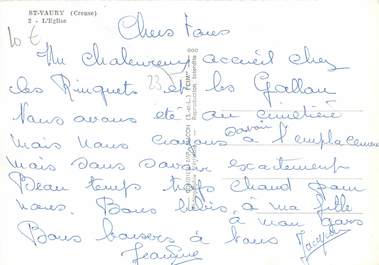 ST-VAURY (Creuse)
2 - L'Eglise
10 €
Chers Tous
Un chaleureux accueil chez
les Ringuets et les Gallan
23
Nous avons été au cimetière
mais nous croyons savoir
à l'emplacement
mais sans savoir exactement
Beau temps trop chaud pour
nous. Bons bisous à ma fille
à mon gars
Bons baisers à tous
Jeanine
Jacques
Reproduction interdite